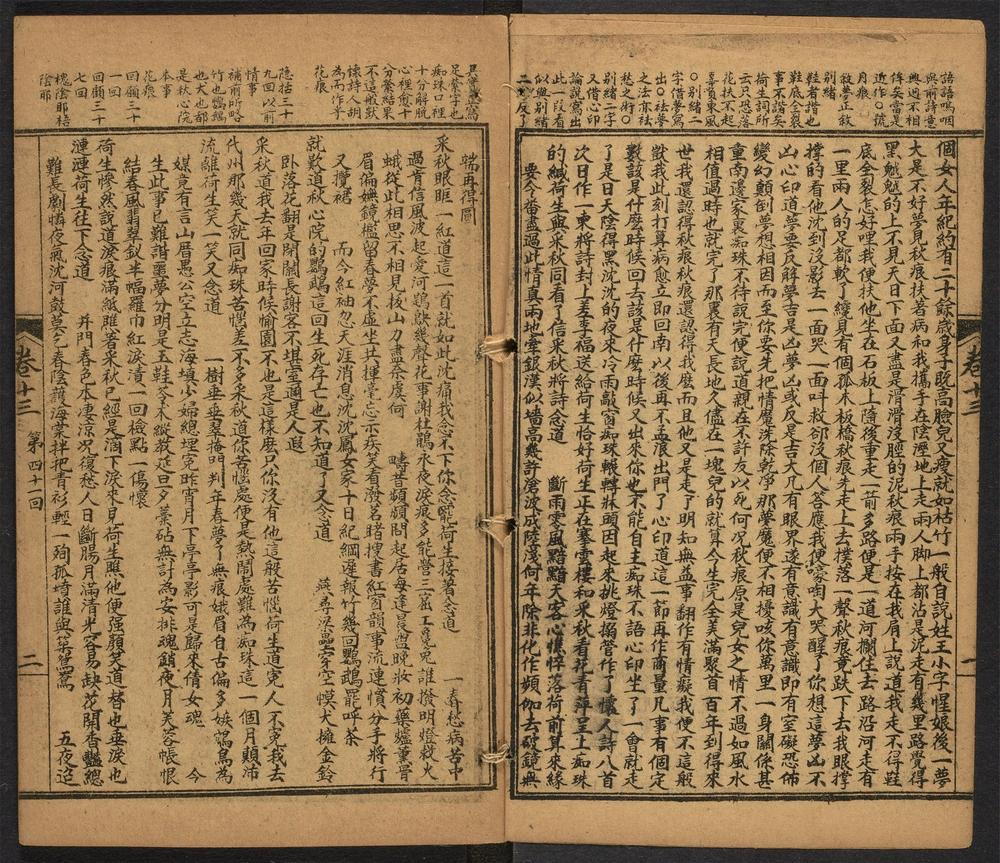 語語嗚咽
與前詩意
侔矣當是
近作○謊
敘夢正敘
別緒
鞋者諧也
鞋底全裂
事不諧矣
荷生詞所
云只恐落
花扶不起
○別緒二
字借夢寫
出○祛夢
之法亦祛
愁之術○
別緒二字
又借心印
論說寫出
此一段看
似與別緒
個女人年紀約有二十餘歲身子既高臉兒又瘦就如枯竹一般自說姓王小字惺娘後一夢
大是不好夢見秋痕扶著病和我攜手在陰溼地上走兩人腳上都沾是泥走有幾里路覺得
黑魆魆的上不見天日下面又盡是滑滑淺脛的泥秋痕兩手按在我肩上說道我走不得鞋
底全裂怎好哩我便扶他坐在石板上隨後重走一箭多路便是一道河攔住去路沿河走有
一里兩人的足都軟了纔見有個孤木板橋秋痕先走上去撲落一聲秋痕竟跌下去我眼撐
撐的看他沈到沒影去一面哭一面叫救卻沒個人答應我便嚎啕大哭醒了你想這夢凶不
凶心印道夢要反解夢吉是凶夢凶或反是吉大凡有眼界遂有意識有意識即有室礙恐怖
變幻顛倒夢想相因而至你要先把情魔洗除乾淨那夢魔便不相擾咳你萬里一身關係甚
重南邊家裏痴珠不待說完便說道親在不許友以死何況秋痕原是兒女之情不過如風水
相值過時也就完了那裏有天長地久儘在一塊兒的就算今生完全美滿聚首百年到得來
世我還認得秋痕秋痕還認得我麼而且他又是走了明知無益事翻作有情癡我便不這般
獃我此刻打算病愈立即回南以後再不孟浪出門了心印道這一節再作商量凡事有個定
數該是什麼時候回去該是什麼時候又出來你也不能自主痴珠不語心印坐了一會就走
了是日天陰得黑沈沈的夜來冷雨敲窗痴珠輾轉牀頭因起來挑燈搦管作了懷人詩八首
次日作一柬將詩封上差李福送給荷生恰好荷生正在搴雲樓和采秋看花青萍呈上痴珠
的緘荷生與采秋同看了信采秋將詩念道　斷雨零風黯黯天客心憔悴落荷前算來緣
要今番盡過此情真兩地牽銀漢似墻高幾許滄波成陸淺何年除非化作頻伽去破鏡無
卷十三
一
足繁字也
痴珠口裡
十分解脫
心裡愈十
分縈結果
不這般獃
懷詩人胡
為而作乎
花痕
隱括三十
九回以前
情事
補前所略
竹也鸚鵡
也犬也都
是秋心院
本事
花痕
回顧三十
一回
回顧三十
七回
槐陰耶梧
陰耶
端再得圓
采秋眼眶一紅道這一首就如此沈痛我念不下你念罷荷生接著念道　一春愁病苦中
過肯信風波起愛河鵑啟幾聲花事謝杜鵑永夜淚痕多能營三窟工冤兔誰撥明燈救火
蛾從此相思不相見拔山力盡奈虞何　疇昔頻頻問起居每逢晨盥晚妝初藥爐重冪
眉偏嫵鏡檻留春夢不虛坐共揮毫忘示疾笑看潑茗暗搜書紅窗韻事流連慣分手將行
又攬裾　而今紅袖忽天涯消息沈沈鳳女家十日紀綱遲報竹幾回鸚鵡罷呼茶
就歎道秋心院的鸚鵡這回生死存亡也不知道了又念道　燕尋梁壘穿空幙犬擁金鈴
卧落花翻是閉關長謝客不堪室邇是人遐
采秋道我去年回家時候愉園不也是這樣麼只你沒有他這般苦惱荷生道寃人不寃我去
代州那幾天就同痴珠苦惱差不多采秋道你苦惱處便是熱鬧處難為痴珠這一個月顛沛
流離荷生笑一笑又念道　一樹垂垂翠掩門判年春夢了無痕娥眉自古偏多嫉鴆鳥為
媒竟有言山厝愚公空立志海填少婦總埋冤昨宵月下亭亭影可是歸來倩女魂　今
生此事已難諧噩夢分明是玉鞋岑木縱教延旦夕藁砧無計為安排魂銷夜月芙蓉帳恨
結春風翡翠釵半幅羅巾紅淚漬一回檢點一傷懷
荷生慘然說道淚痕滿紙瞧著采秋已經是滴下淚來見荷生瞧他便强顏笑道替也垂淚也
漣漣荷生往下念道　并門春色本淒涼況復愁人日斷腸月滿清光容易缺花開香豔總
難長劇憐夜氣沈河鼓莫乞春陰護海棠拌把青衫輕一殉孤墳誰與築鴛鴦　五夜迢
卷十三
第四十一回
二